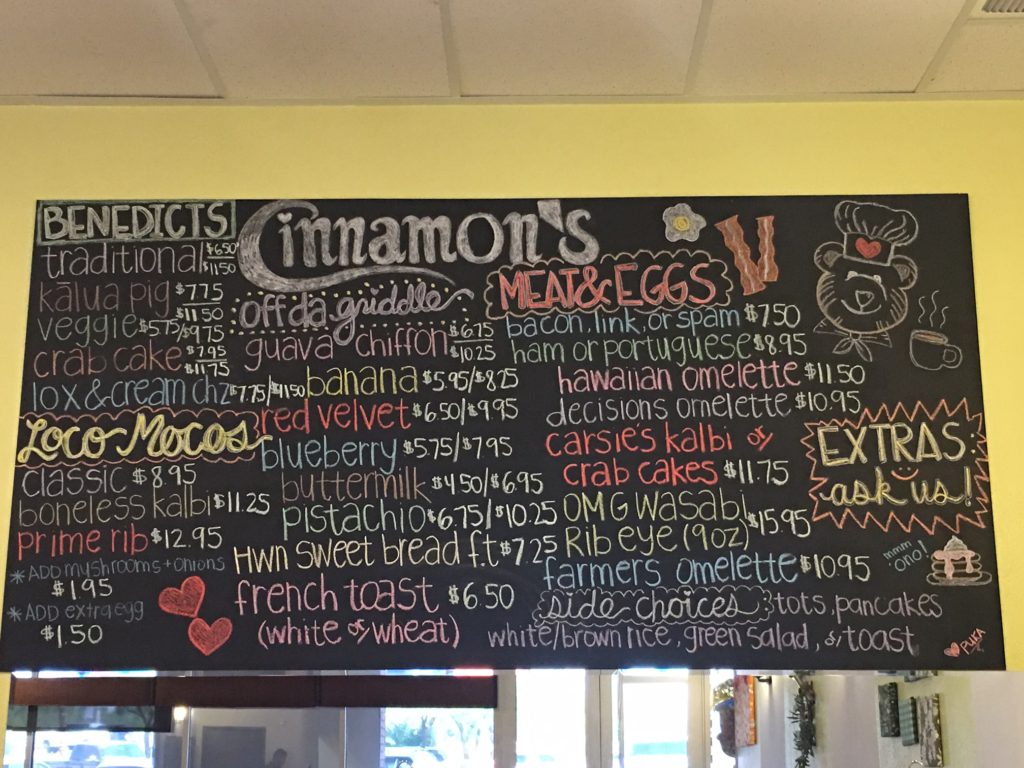 BENEDICTS
traditional $6.50 $11.50
kālua pig $7.75 $11.50
veggie $5.75/$9.75
crab cake $7.95 $11.75
lox & cream chz $7.75/$11.50
Loco Mocos
classic $8.95
boneless kalbi $11.25
prime rib $12.95
*ADD mushrooms + onions
$1.95
*ADD extra egg
$1.50
Cinnamon's
off da griddle
guava chiffon $6.75 $10.25
banana $5.95/$8.25
red velvet $6.50/$9.95
blueberry $5.75/$7.95
buttermilk $4.50/$6.95
pistachio $6.75/$10.25
HWN SWEET BREAD f.t $7.25
french toast $6.50
(white or wheat)
MEAT & EGGS
bacon, link, or spam $7.50
ham or portuguese $8.95
hawaiian omelette $11.50
decisions omelette $10.95
carsie's kalbi or
crab cakes $11.75
OMG WASABI
Rib eye (9oz) $15.95
farmers omelette $10.95
side choices: tots, pancakes
white/brown rice, green salad, or toast
EXTRAS:
ask us!
mmm
ono!
PUKA